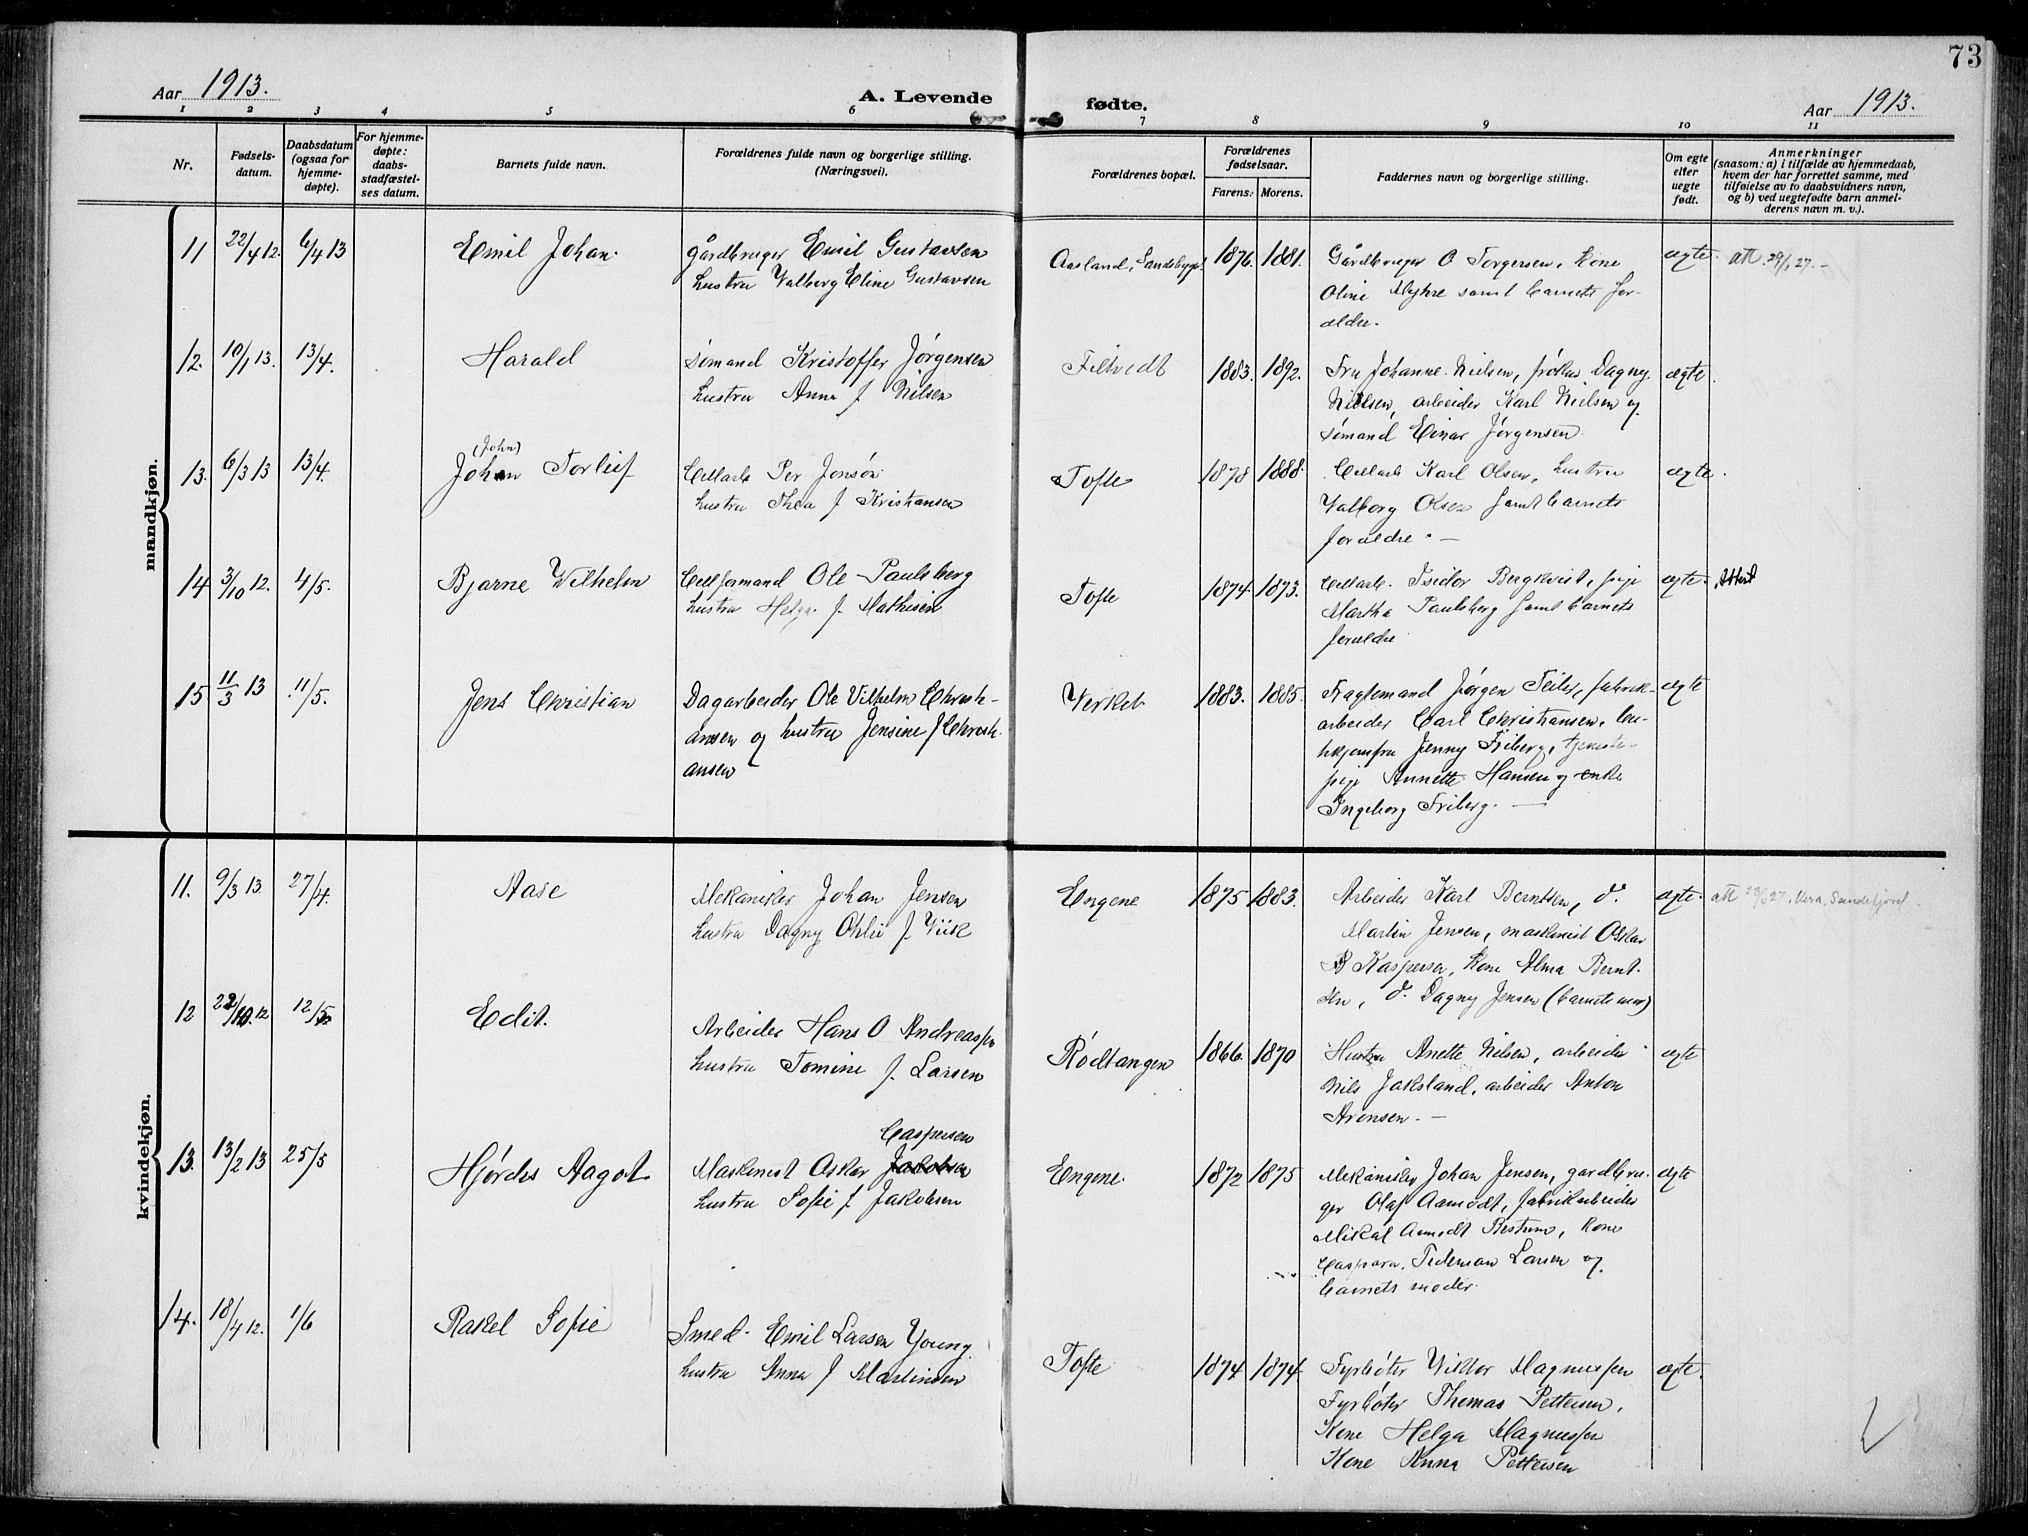 73
Aar 1913.
A. Levende fødte.
Aar 1913.
1 2 3 4 5 6 7 8 9 10 11
Nr.
Fødsels-
datum.
Daabsdatum
(ogsaa for
hjemme-
døpte).
For hjemme-
døpte:
daabs-
stadfæstel-
ses datum.
Barnets fulde navn.
Forældrenes fulde navn og borgerlige stilling.
(Næringsvei).
Forældrenes bopæl.
Forældrenes
fødselsaar.
Farens: Morens.
Faddernes navn og borgerlige stilling.
Om egte
eller
uegte
født.
Anmerkninger
(saasom: a) i tilfælde av hjemmedaab,
hvem der har forrettet samme, med
tilføielse av to daabsvidners navn,
og b) ved uegtefødte barn anmel-
derens navn m. v.).
mandkjøn.
11 22/4 12. 6/4 13 Emil Johan.
gårdbruger Emil Gustavsen
hustru Valborg Eline Gustavsen
Aasland, 1876. 1881.
Gårdbruger O Torgersen, Kone
Oline Myhre samt barnets for-
ældre.
ægte. att. 29/1 27. -
12. 10/1 13. 13/4. Harald
Sømand Kristoffer Jørgensen
hustru Anna f Nilsen
Filtvedt 1883. 1892.
Fru Johanne Nielsen, frøken Dagny
Nielsen, arbeider Karl Nielsen og
sømand Einar Jørgensen.
ægte.
13. 6/3 13 13/4. (John)
Johan Torleif
Cellarb Per Jonsør
hustru Thea f Kristiansen
Tofte 1878 1888.
Cellarb Karl Olsen, hustru
Valborg Olsen samt barnets
forældre. -
ægte.
14 3/10 12. 4/5. Bjarne Wilhelm
Cellformand Ole Paulsberg
hustru Helga f Mathisen
Tofte 1874. 1873.
Cellarb. Isidor Bergkvist, pige
Martha Paulsberg samt barnets
forældre
ægte. Attest
15 11/3 13 11/5. Jens Christian
Dagarbeider Ole Vilhelm Christi-
ansen og hustru Jensine f Christi-
ansen
Verket 1883. 1885.
Fragtemand Jørgen Teiler, fabrik-
arbeider Carl Christiansen,
Jenny Friberg, tjeneste-
pige Annette Hansen og enke
Ingeborg Friberg. -
ægte
kvindekjøn.
11. 9/3 13 27/4. Aase
Mekaniker Johan Jensen
hustru Dagny Othlie f Wiik
Engene 1875 1883.
Arbeider Karl Berntsen, do
Martin Jensen, maskinist Oskar
B Kaspersen, Kone Alma Bernt-
sen, do. Dagny Jensen (barnets mor)
ægte. att 28/6 27. Vera, Sandefjord.
12 22/10. 12 12/5 Edit.
Arbeider Hans O Andreassen
hustru Tomine f. Larsen
Rødtangen 1866. 1870
Hustru Anette Nilsen, arbeider
Nils Jaksland, arbeider Anton
Arensen. -
ægte
13. 13/2 13 25/5 Hjørdis Aagot
Caspersen
Maskinist Oskar Jakobsen
hustru Sofie f Jakobsen
Engene. 1872 1875
Mekaniker Johan Jensen, gardbru-
ger Olaf Aamodt, fabrikarbeider
Mikal Aamodt Bestum, kone
Caspara Tideman Larsen og
barnets moder.
ægte
14. 18/4 12. 1/6 Rakel Sofie
Smed. Emil Larsen Young.
hustru Anna f Martinsen
Tofte 1874 1874.
Fyrbøter Viktor Magnussen
Fyrbøter Thomas Pettersen,
Kone Helga Magnussen
Kone Anna Pettersen
ægte.